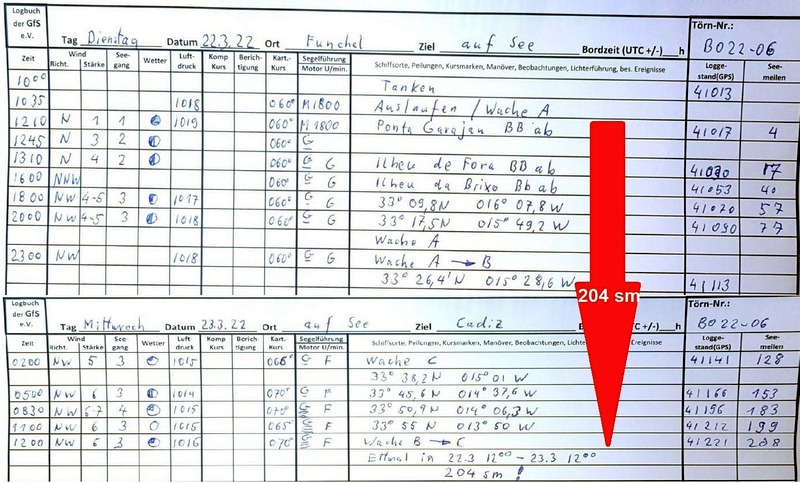 Logbuch der GfS e.V. Tag Dienstag Datum 22.3.22 Ort Funchel Ziel auf See Bordzeit (UTC +/-)___h Törn-Nr.: BO22-06
Zeit Wind Richt. Stärke See-gang Wetter Luft-druck Komp Kurs Berich-tigung Kart.-Kurs Segelführung Motor U/min. Schiffsorte, Peilungen, Kursmarken, Manöver, Beobachtungen, Lichterführung, bes. Ereignisse Logge-stand(GPS) See-meilen
10⁰⁰ Tanken 41013
1035 1018 060° M1800 Auslaufen / Wache A
1210 N 1 1 1019 060° M 1800 Ponta Garajau BB ab 41017 4
1245 N 3 2 060° G
1310 N 4 2 060° G G Ilheu de Fora BB ab 17
1600 NNW 060° G Ilheu da Brixo Bb ab 41053 40
1800 NW 4-5 3 1017 060° G G 33° 09,8N 016° 07,8W 41070 57
2000 NW 4-5 3 1018 060° G G 33° 17,5N 015° 49,2 W 41090 77
Wache A
2300 NW 1018 060° G G Wache A → B
33° 26,4'N 015° 28,6 W 41113
204 sm
Logbuch der GfS e.V. Tag Mittwoch Datum 23.3.22 Ort auf See Ziel Cadiz (UTC +/-)___h Törn-Nr.: BO22-06
Zeit Wind Richt. Stärke See-gang Wetter Luft-druck Komp Kurs Berich-tigung Kart.-Kurs Segelführung Motor U/min. Schiffsorte, Peilungen, Kursmarken, Manöver, Beobachtungen, bes. Ereignisse Logge-stand(GPS) See-meilen
0200 NW 5 3 1015 065° G F Wache C 41141 128
33° 38,2 N 015° 01 W
0500 NW 6 3 1014 070° G F 33° 45,6 N 014° 37,6 W 41166 153
0830 NW 6-7 4 1015 070° G F 33° 50,9 N 014° 06,3 W 41196 183
1100 NW 6 3 1015 065° G F 33° 55 N 013° 50 W 41212 199
1200 NW 6 3 1016 070° G F Wache B → C 41221 208
Etmal in 22.3 12⁰⁰ - 23.3 12⁰⁰
204 sm !